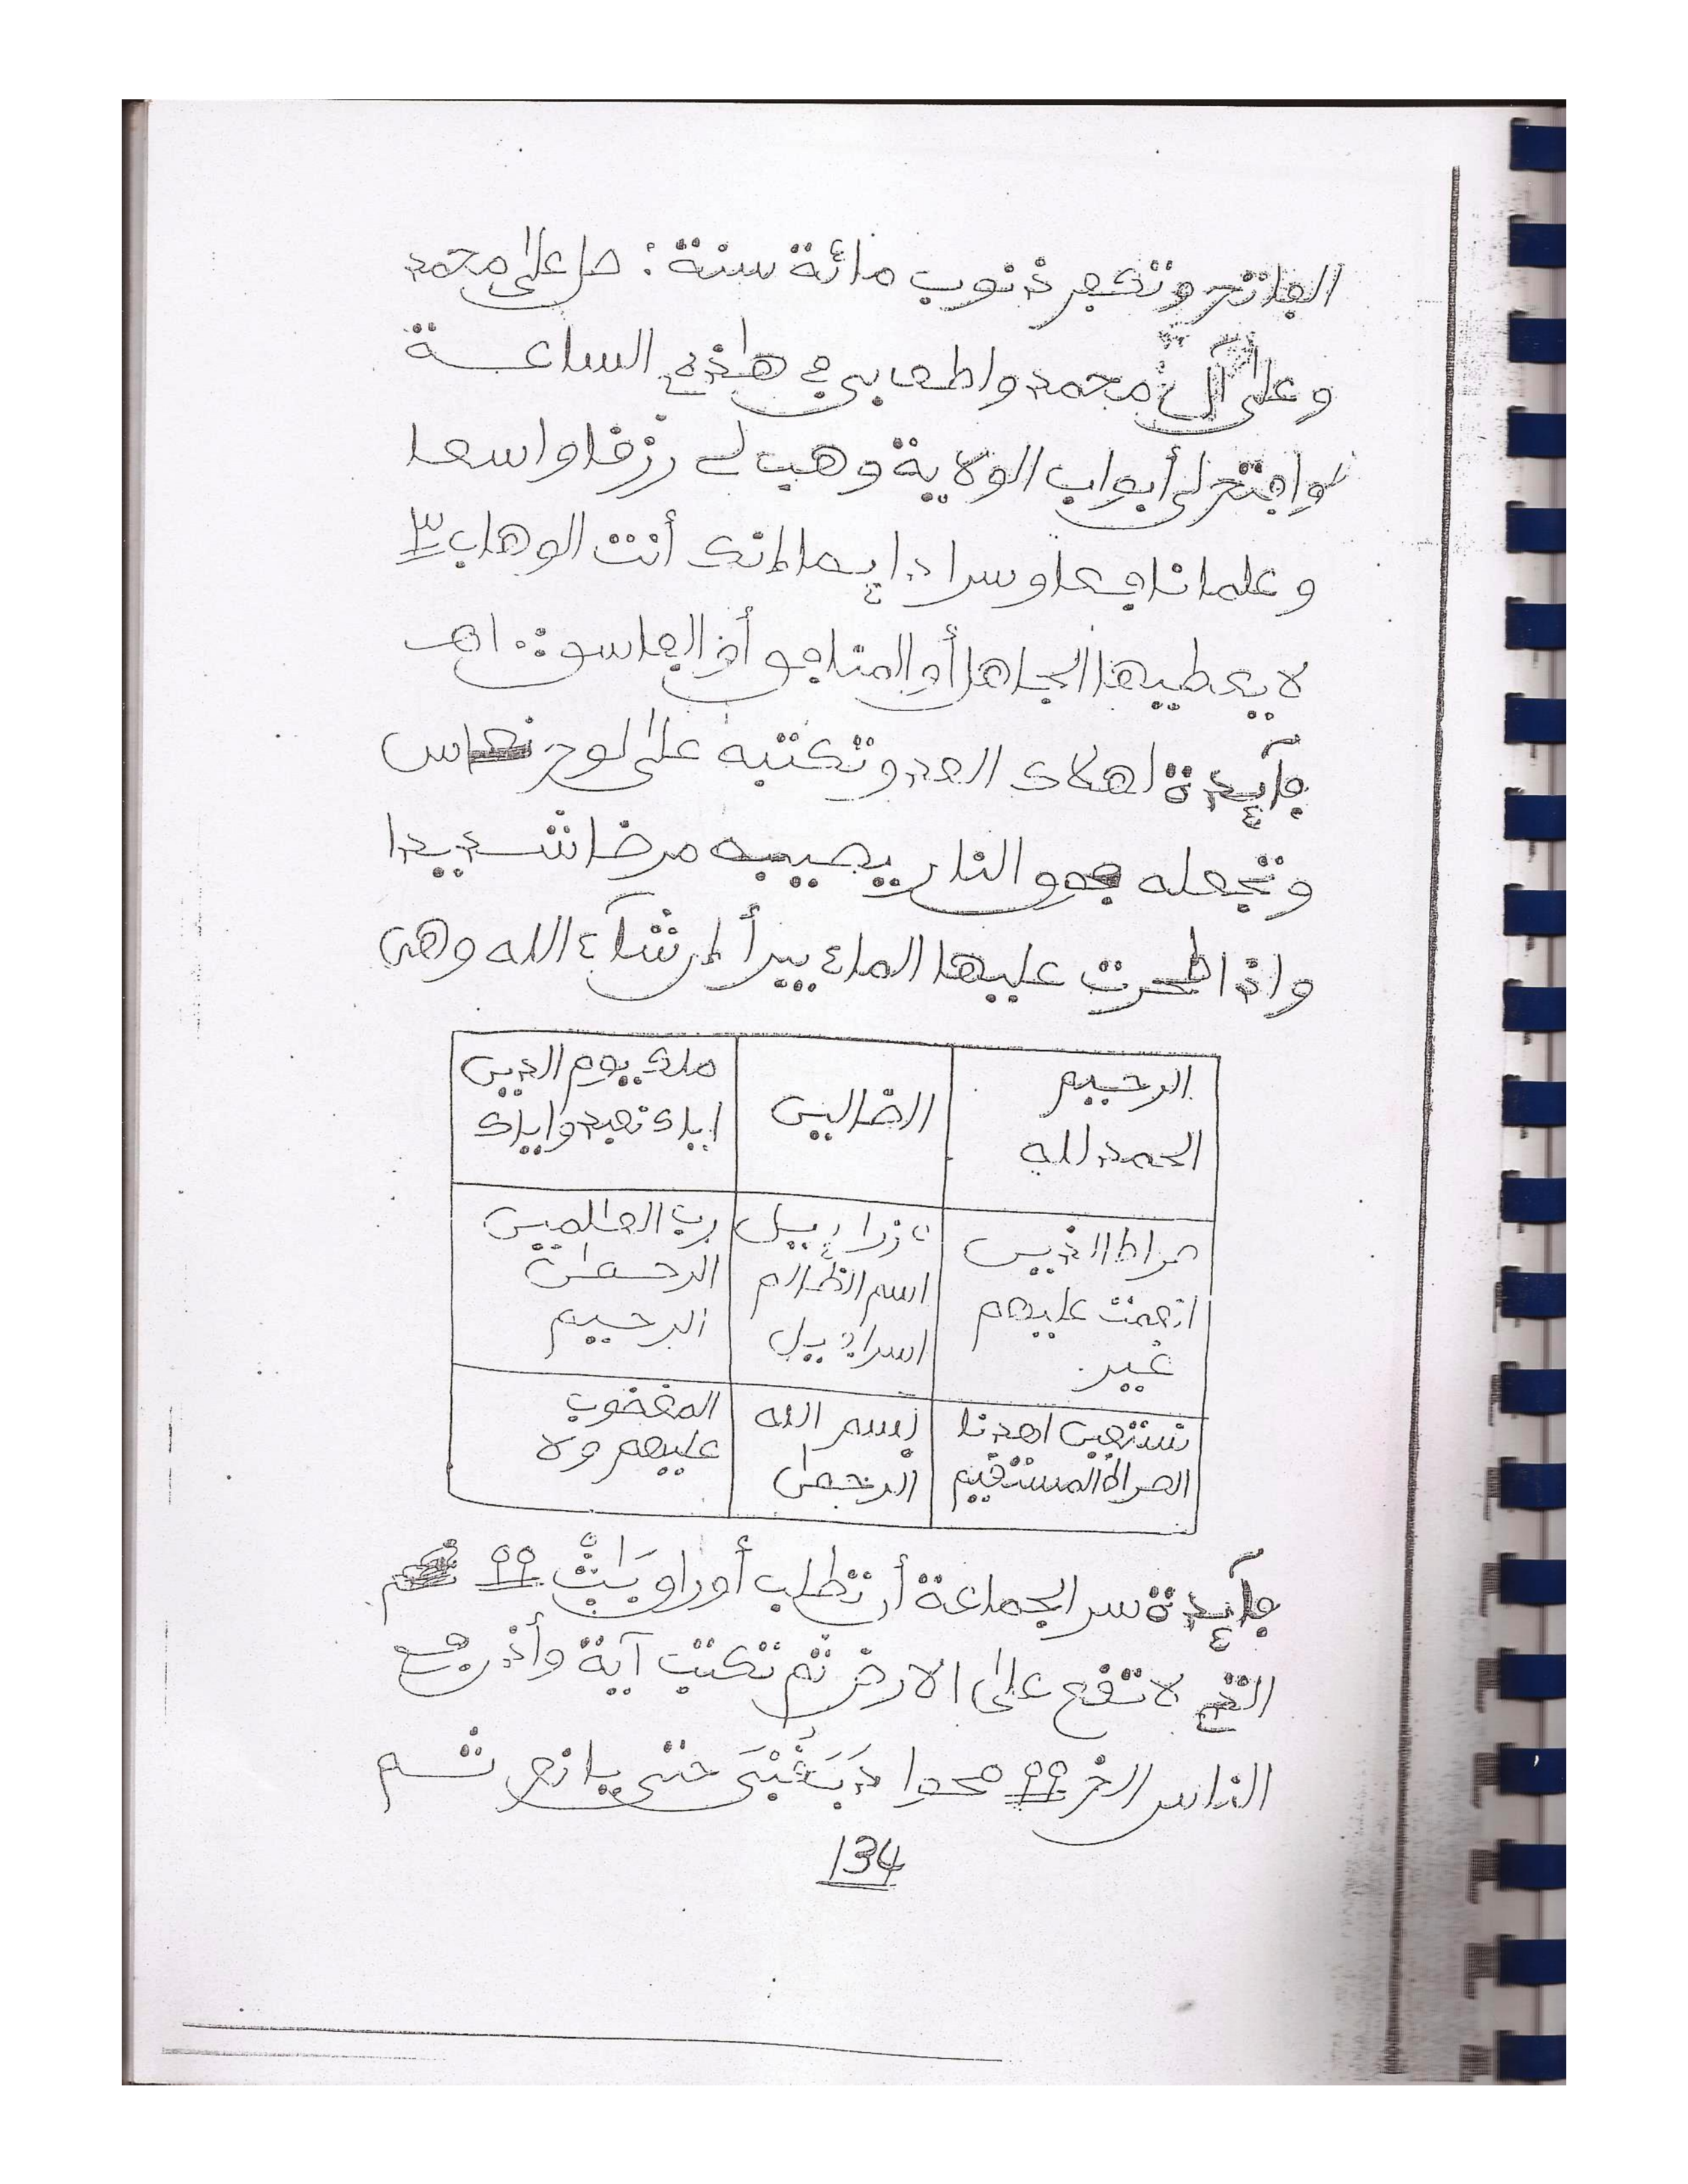 الفاتح وتكفر ذنوب مائة سنة : صل على محمد
وعلى آل محمد والطف بي في هذه الساعة
وافتح لي أبواب الولاية وهب لي رزقا واسعا
وعلما نافعا وسرا دايما إنك أنت الوهاب ٣
لا يعطيها الجاهل أو المنافق أو الفاسق .. اهـ
فآيدة لهلاك العدو تكتبه على لوح نحاس
وتجعله فوق النار يصيبه مرضا شديدا
واذا طحرت عليها الماء يبرأ إن شآء الله وهي
الرحيم
الحمد لله
الضالين
ملك يوم الدين
اياك نعبد واياك
صراط الذين
انعمت عليهم
غير
اسم الظالم
رب العلمين
الرحمن
الرحيم
نستعين اهدنا
الصراط المستقيم
بسم الله
الرحمن
المغضوب
عليهم ولا
فآيدة سر الجماعة أن تطلب أوراق
التي لا تقع على الارض ثم تكتب آية وأذن في
الناس الخ ٩٩ حتى يانع ثم
134